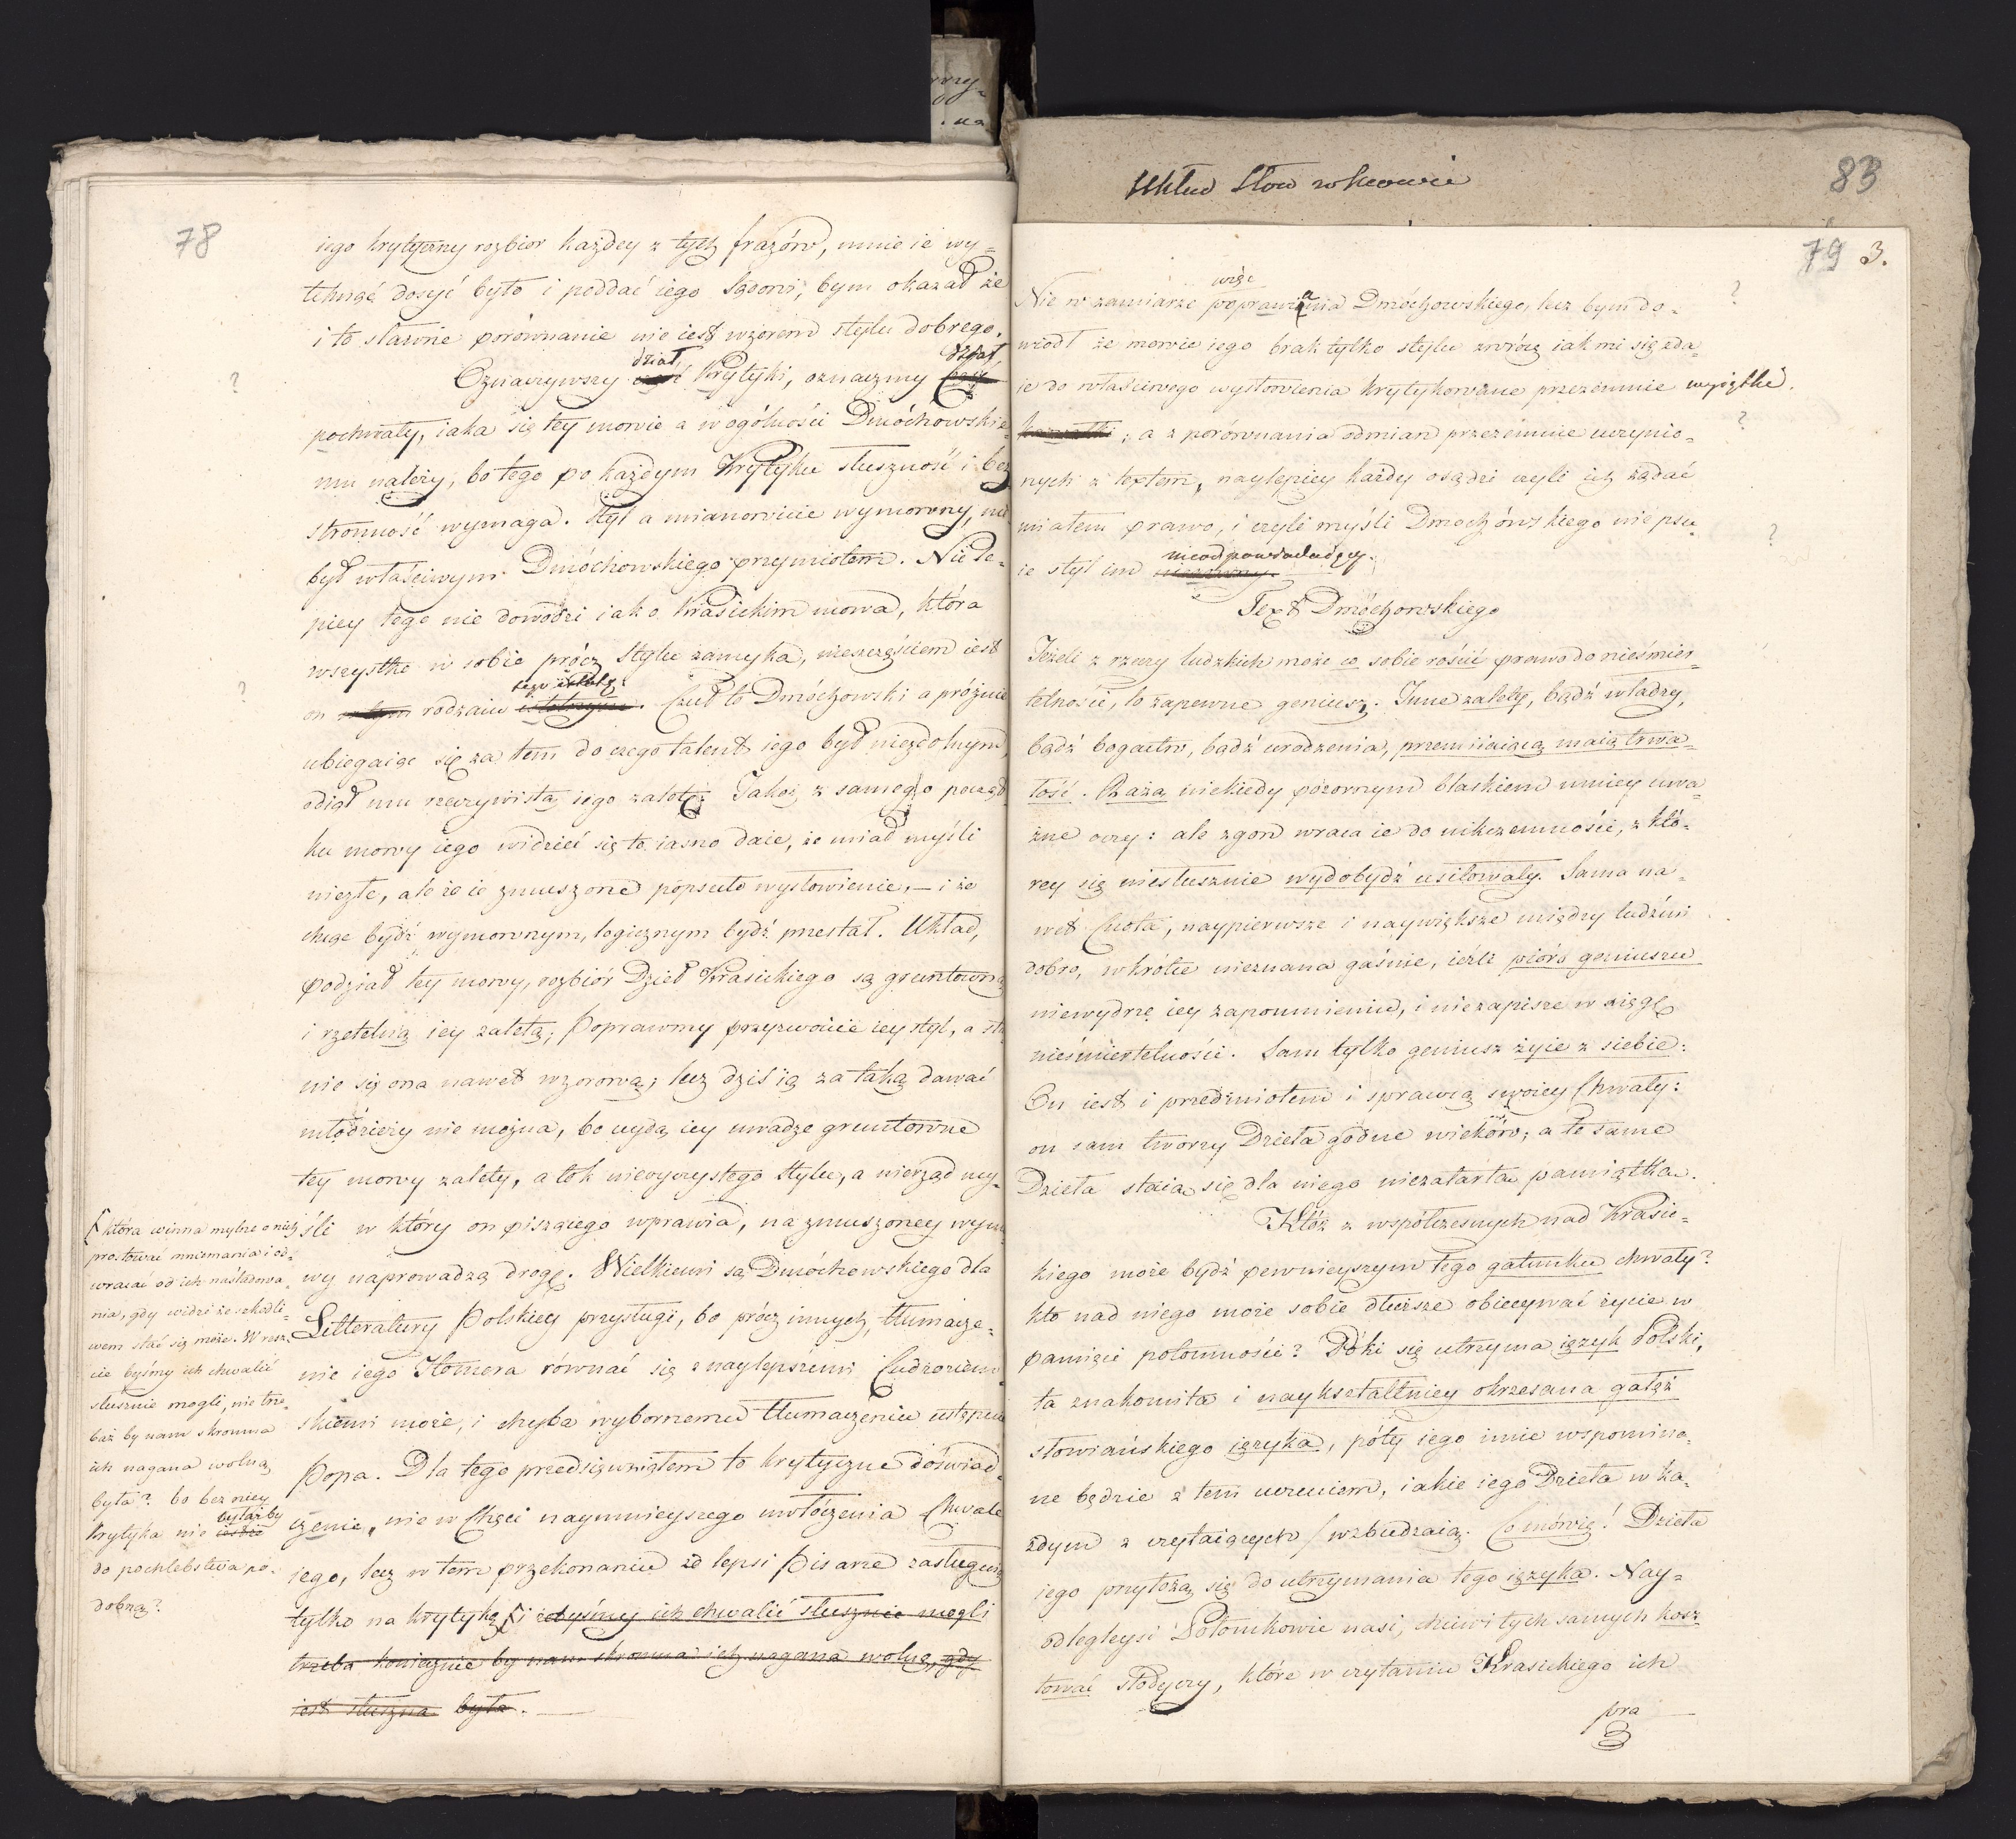 78
iego krytyczny rozbior każdey z tych frazów, mnie ie wy=
tchnąć dosyć było i poddać iego Sądowi, bym okazał że
i to sławne porównanie nie iest wzorem stylu dobrego.
Oznaczywszy dział Krytyki, oznaczmy dział
pochwały, iaka się tey mowie a w ogólności Dmóchowskie=
mu należy, bo tego po każdym Krytyku słuszność i bez
stronność wymaga. Styl a mianowicie wymowny, nie
był właściwym Dmóchowskiego przymiotem. Nic le=
piey tego nie dowodzi iak o Krasickim mowa, która
wszystko w sobie prócz Stylu zamyka, nieszczęściem iest
on rodzaiu. Czuł to Dmóchowski a próżnie
ubiegaiąc się za tem do czego talent iego był niezdolnym,
odiął mu rzeczywistą iego zaletę: Jakoż z samego począt
ku mowy iego widzieć się to iasno daie, że miał myśli
niezłe, ale że ie zmuszone popsuło wysłowienie, — i że
chcąc bydź wymownym, logicznym bydź przestał. Układ,
podział tey mowy, rozbiór Dzieł Krasickiego są gruntowną
i rzetelną iey zaletą; Poprawmy przyzwoicie iey styl, a sta
nie się ona nawet wzorową; lecz dziś ią za taką dawać
młodzieży nie można, bo uydą iey uwadze gruntowne
tey mowy zalety, a tok nieczystego Stylu, a nierząd my=
śli w który on piszącego wprawia, na zmuszoney wymo
wy naprowadzą drogę. Wielkiemi są Dmóchowskiego dla
Litteratury Polskiey przysługi, bo prócz innych, tłumacze=
nie iego Homera równać się z naylepszemi Cudzoziem=
skiemi może, i chyba wybornemu tłumaczeniu ustępuie
Popa. Dla tego przedsięwziąłem to krytyczne doświad=
czenie, nie w Chęci naymnieyszego uwłóczenia Chwale
iego, lecz w tem przekonaniu że lepsi Pisarze zasługuią
tylko na krytykę i żebyśmy ich chwalić słusznie mogli
trzeba koniecznie by nam skromna ich nagana wolną, gdy
iest słuszna była.
która winna mylne o nich
prostować mniemania i od=
wracać od ich naśladowa=
nia, gdy widzi że szkodli=
wem stać się może. Wresz=
cie byśmy ich chwalić
słusznie mogli, nie trze=
baż by nam skromna
ich nagana wolną
była? bo bez niey
krytyka nie byłażby
do pochlebstwa po=
dobną?
Układ Słow w mowie
83
79 3.
więc
Nie w zamiarze poprawiania Dmóchowskiego, lecz bym do=
wiódł że mowie iego brak tylko stylu zwrócę iak mi się zda=
ie do właściwego wysłowienia krytykowane przezemnie wyiątki.
; a z porównania odmian przezemnie uczynio=
nych z textem, naylepiey każdy osądzi czyli ich żądać
miałem prawo, i czyli myśli Dmochówskiego nie psu=
nieodpowiadaiący.
ie styl im
Text Dmóchowskiego
Jeżeli z rzeczy ludzkich może co sobie rościć prawo do nieśmier=
telności, to zapewne geniusz. Inne zalety, bądź władzy,
bądź bogactw, bądź urodzenia, przemiiaiącą maią trwa=
łość. Rażą niekiedy pozornym blaskiem mniey uwa=
żne oczy: ale zgon wraca ie do nikczemności, z któ=
rey się niesłusznie wydobydź usiłowały. Sama na=
wet Cnota, naypierwsze i naywiększe między ludźmi
dobro, wkrótce nieznana gaśnie, ieźli pióro geniuszu
niewydrze iey zapomnieniu, i niezapisze w xięgę
nieśmiertelności. Sam tylko geniusz żyie z siebie:
On iest i przedmiotem i sprawcą swoiey Chwały:
on sam tworzy Dzieła godne wieków; a te same
Dzieła staią się dla niego niezatartą pamiątką.
Któż z współczesnych nad Krasic=
kiego może bydź pewnieyszym tego gatunku chwały?
kto nad niego może sobie dłuższe obiecywać życie w
pamięci potomności? Póki się utrzyma ięzyk Polski,
ta znakomita i naykształtniey okrzesana gałąź
słowiańskiego ięzyka, póty iego imie wspomina=
ne będzie z tem uczuciem, iakie iego Dzieła w ka=
żdym z czytaiących wzbudzaią. Co mówię! Dzieła
iego przyłożą się do utrzymania tego ięzyka. Nay=
odlegleysi Potomkowie nasi, chciwi tych samych kosz
tować słodyczy, które w czytaniu Krasickiego ich
pra